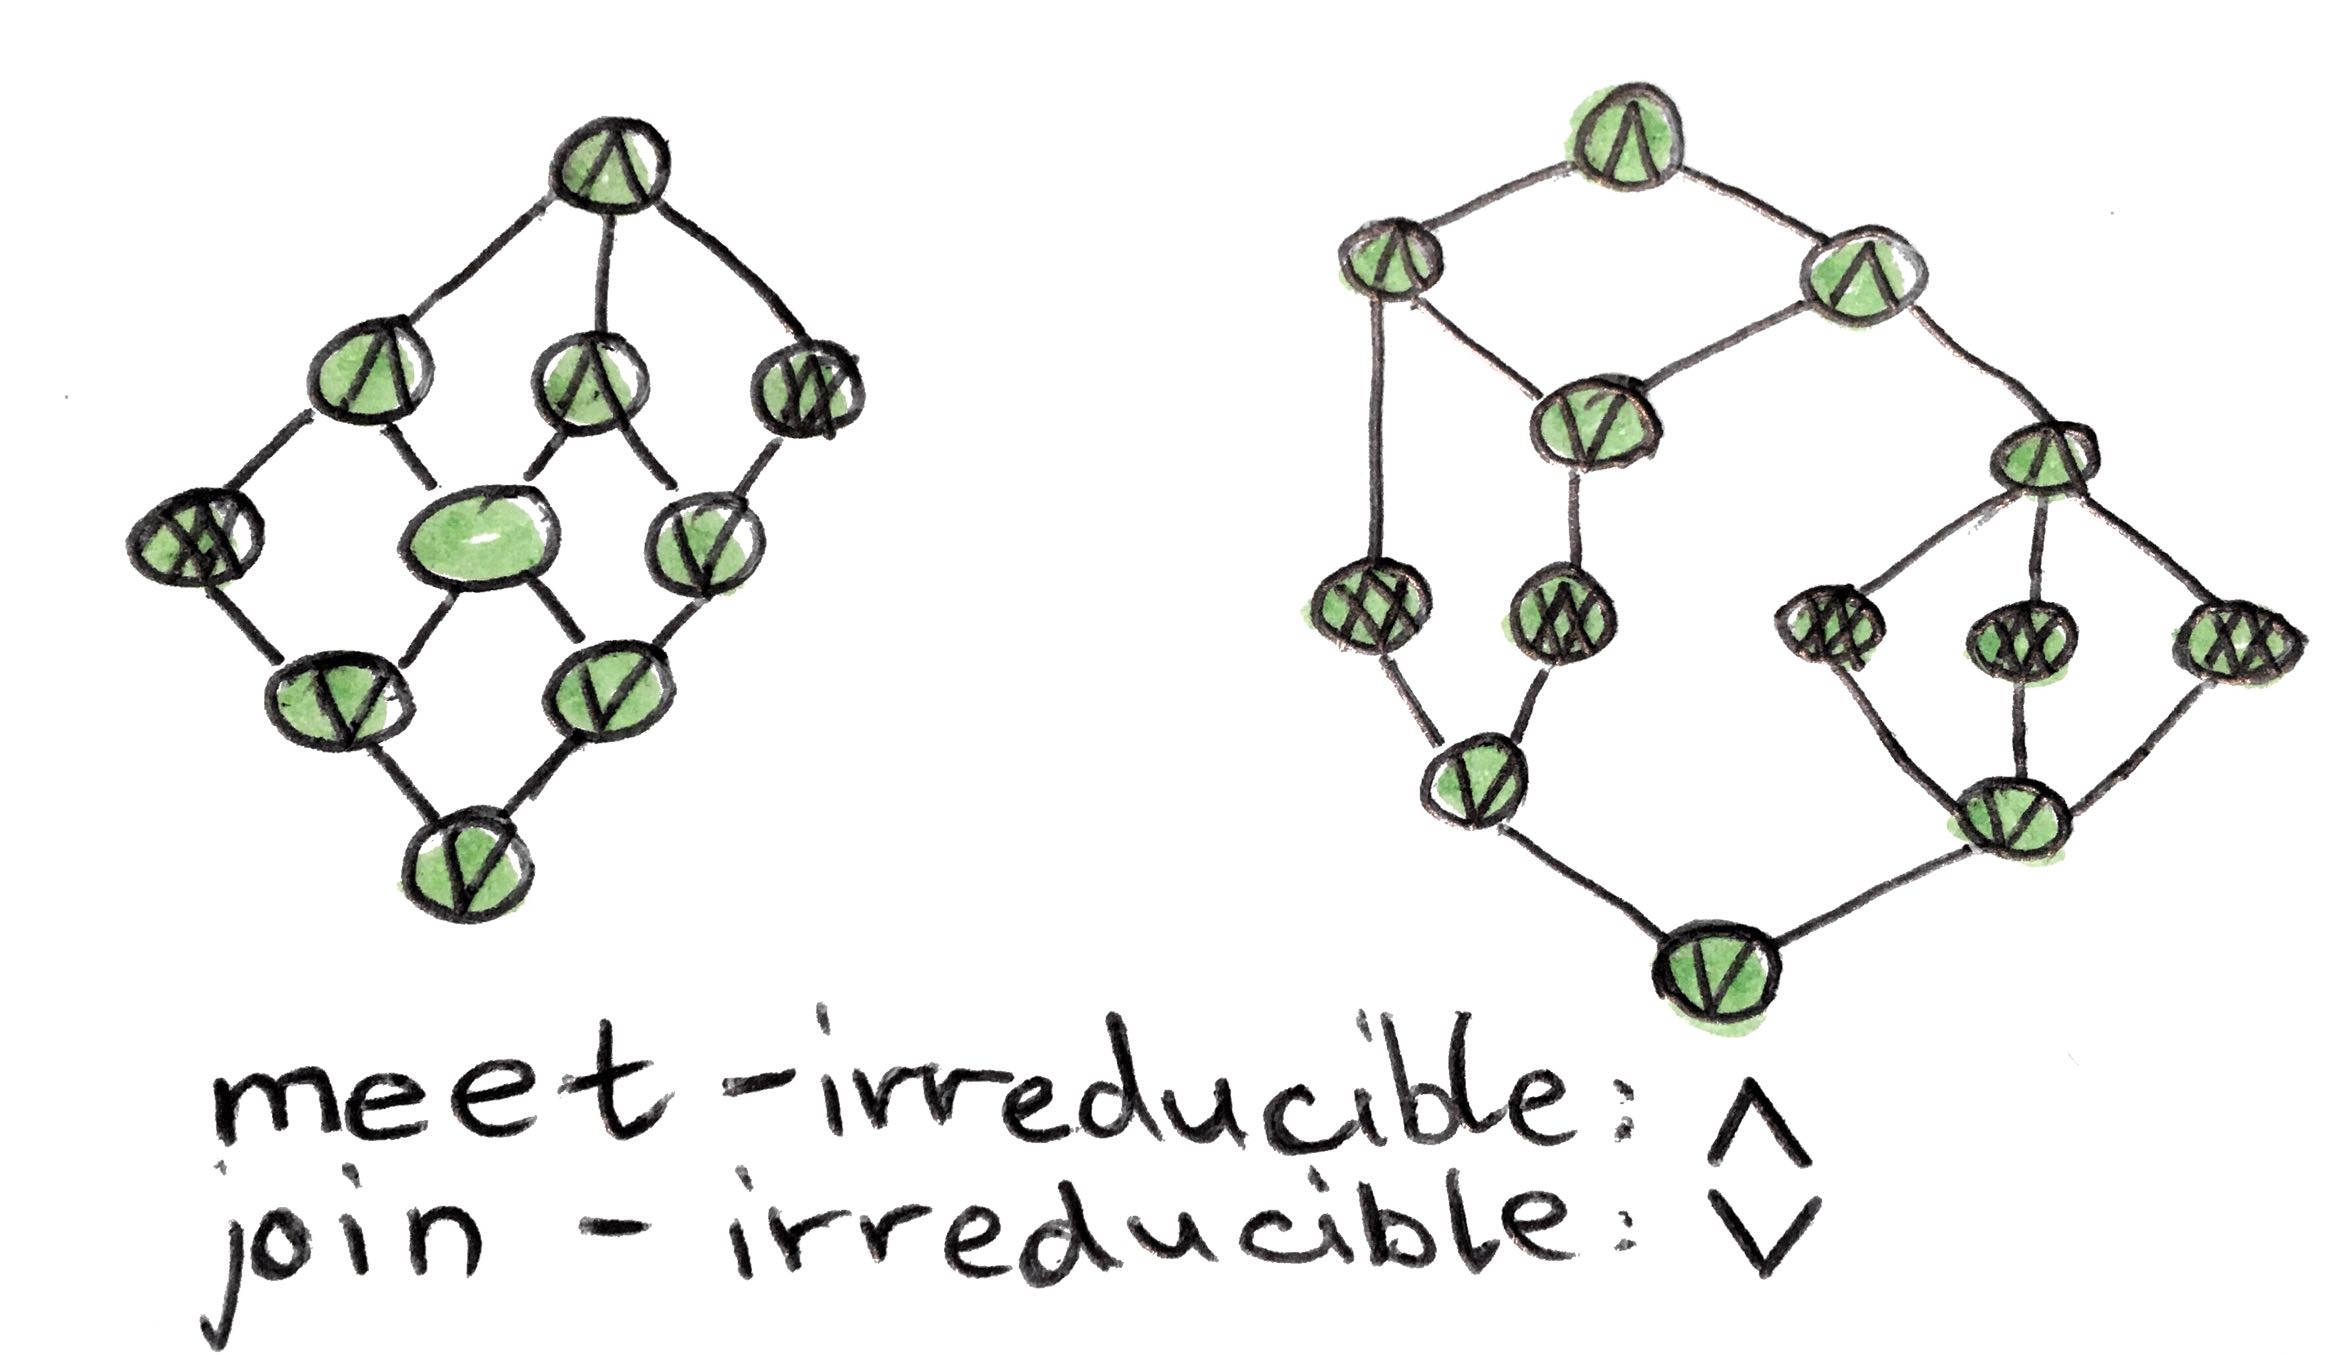 meet-irreducible: ∧
join-irreducible: ∨